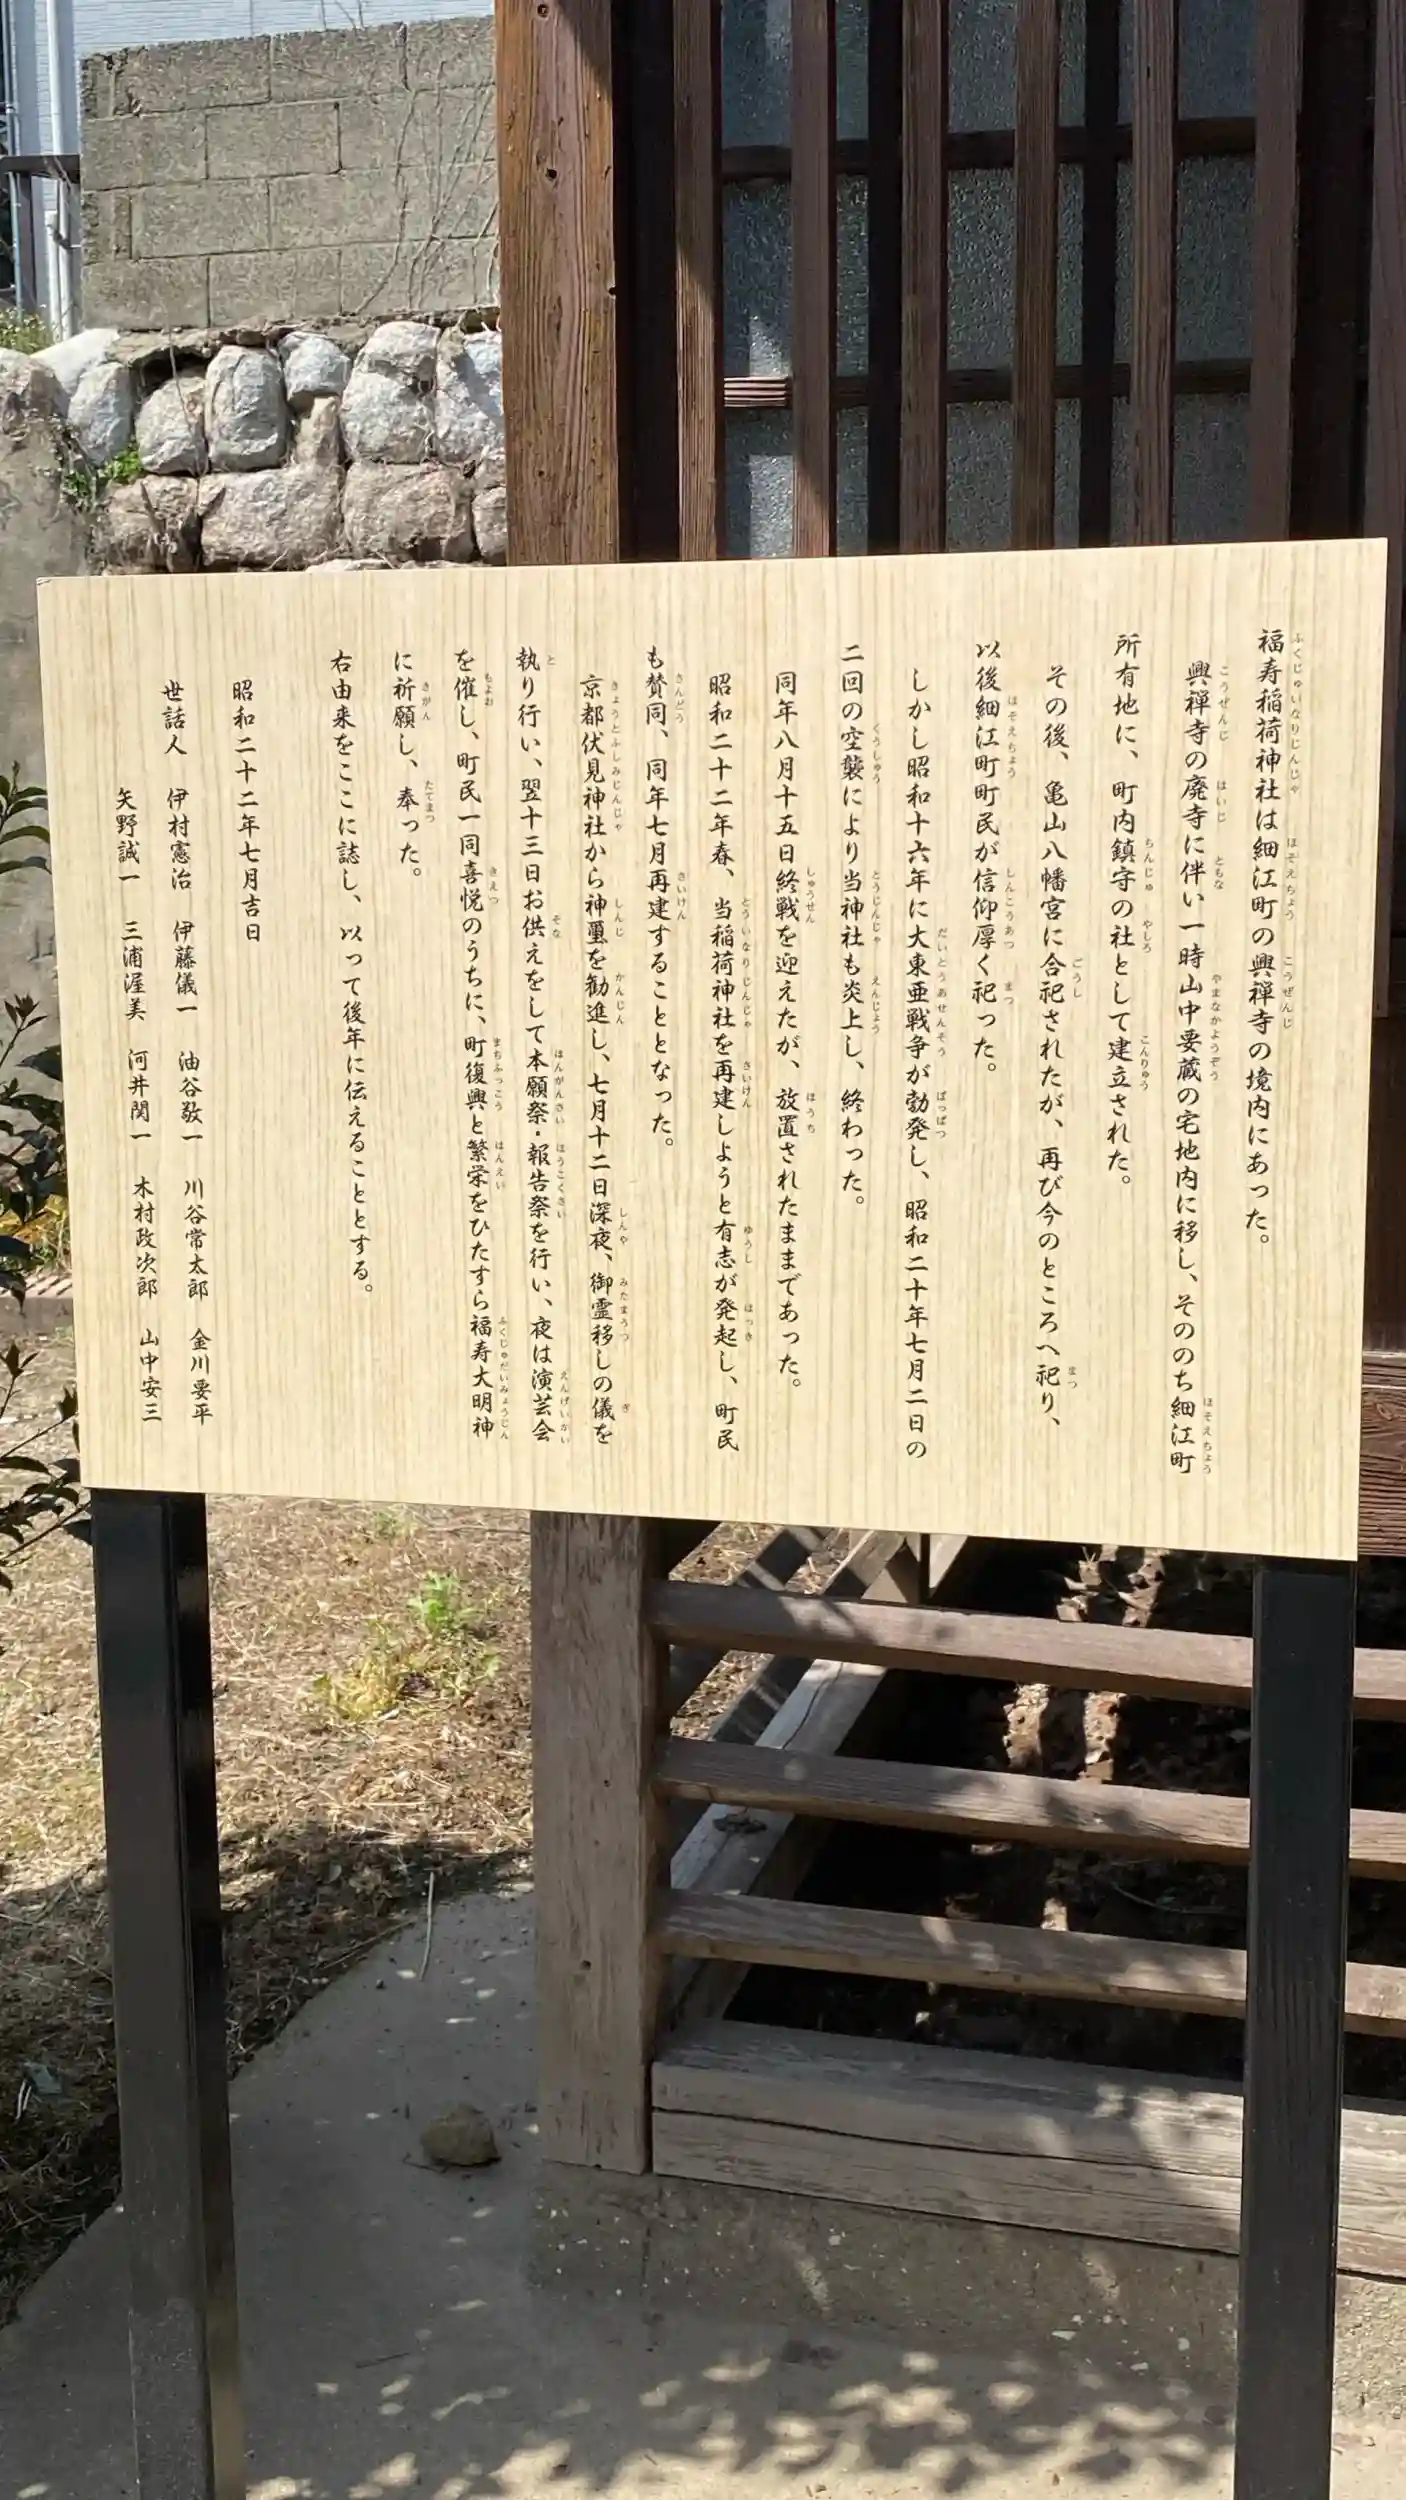 福寿稲荷神社は細江町の興禅寺の境内にあった。
興禅寺の廃寺に伴い一時山中要蔵の宅地内に移し、そののち細江町
所有地に、町内鎮守の社として建立された。
その後、亀山八幡宮に合祀されたが、再び今のところへ祀り、
以後細江町町民が信仰厚く祀った。
しかし昭和十六年に大東亜戦争が勃発し、昭和二十年七月二日の
二回の空襲により当神社も炎上し、終わった。
同年八月十五日終戦を迎えたが、放置されたままであった。
昭和二十二年春、当稲荷神社を再建しようと有志が発起し、町民
も賛同、同年七月再建することとなった。
京都伏見神社から神璽を勧進し、七月十二日深夜、御霊移しの儀を
執り行い、翌十三日お供えをして本願祭・報告祭を行い、夜は演芸会
を催し、町民一同喜悦のうちに、町復興と繁栄をひたすら福寿大明神
に祈願し、奉った。
右由来をここに誌し、以って後年に伝えることとする。
昭和二十二年七月吉日
世話人 伊村憲治 伊藤儀一 油谷敬一 川谷常太郎 金川要平
矢野誠一 三浦渥美 河井関一 木村政次郎 山中安三